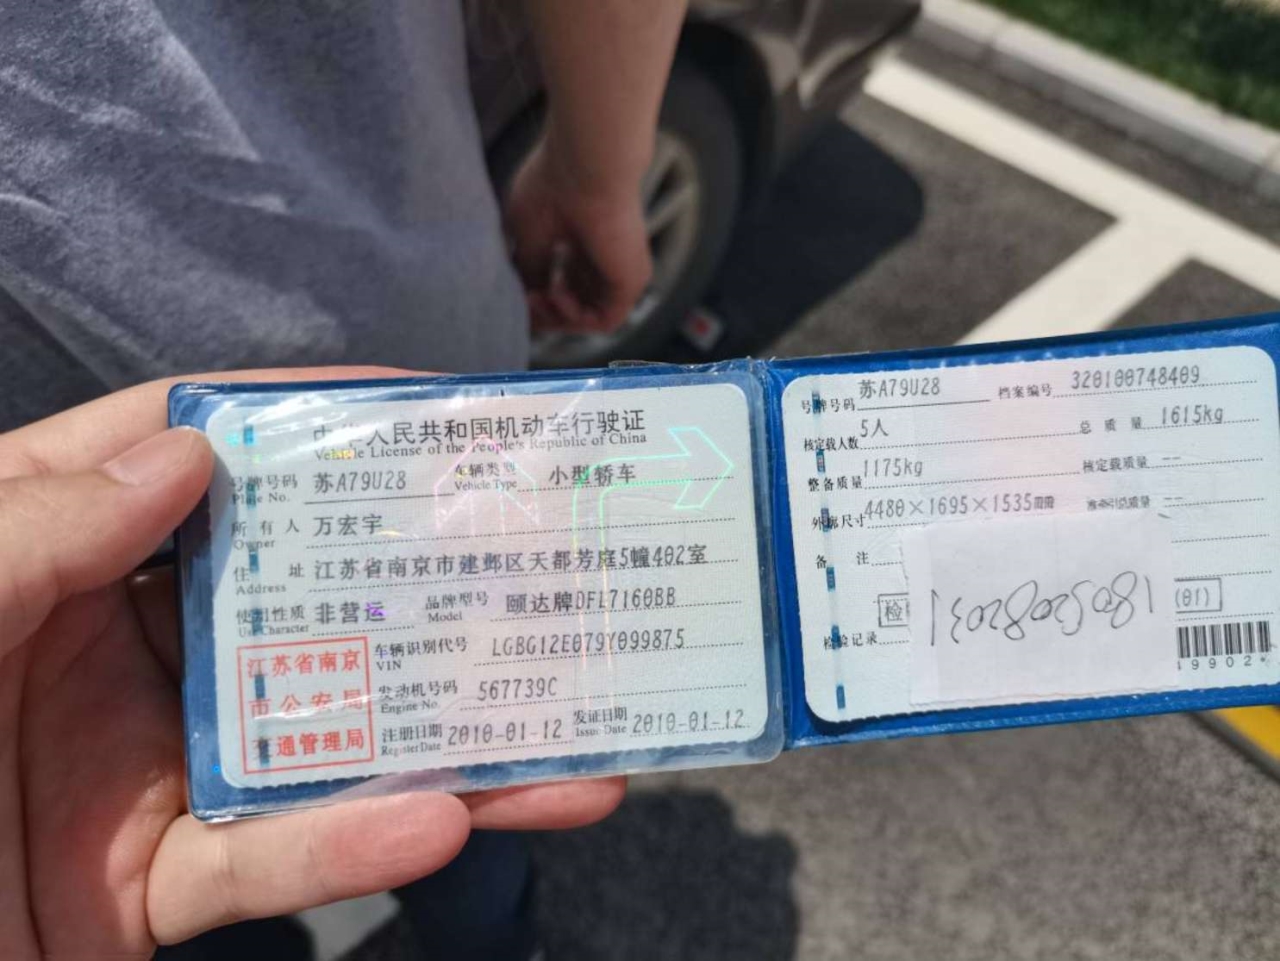 中华人民共和国机动车行驶证
Vehicle License of the People's Republic of China
号牌号码 苏A79U28 车辆类型 小型轿车
Plate No. Vehicle Type
所有人 万宏宇
Owner
住址 江苏省南京市建邺区天都芳庭5幢402室
Address
使用性质 非营运 品牌型号 颐达牌DFL7160BB
Use Character Model
江苏省南京
市公安局
交通管理局
车辆识别代号 LGBG12E079Y099875
VIN
发动机号码 567739C
Engine No.
注册日期 2010-01-12 发证日期 2010-01-12
Register Date Issue Date
号牌号码 苏A79U28 档案编号 320100748409
核定载人数 5人 总质量 1615kg
整备质量 1175kg 核定载质量 --
外廓尺寸 4480×1695×1535mm 准牵引总质量 --
备注
检验记录 检 (01)
18052082031
19902*